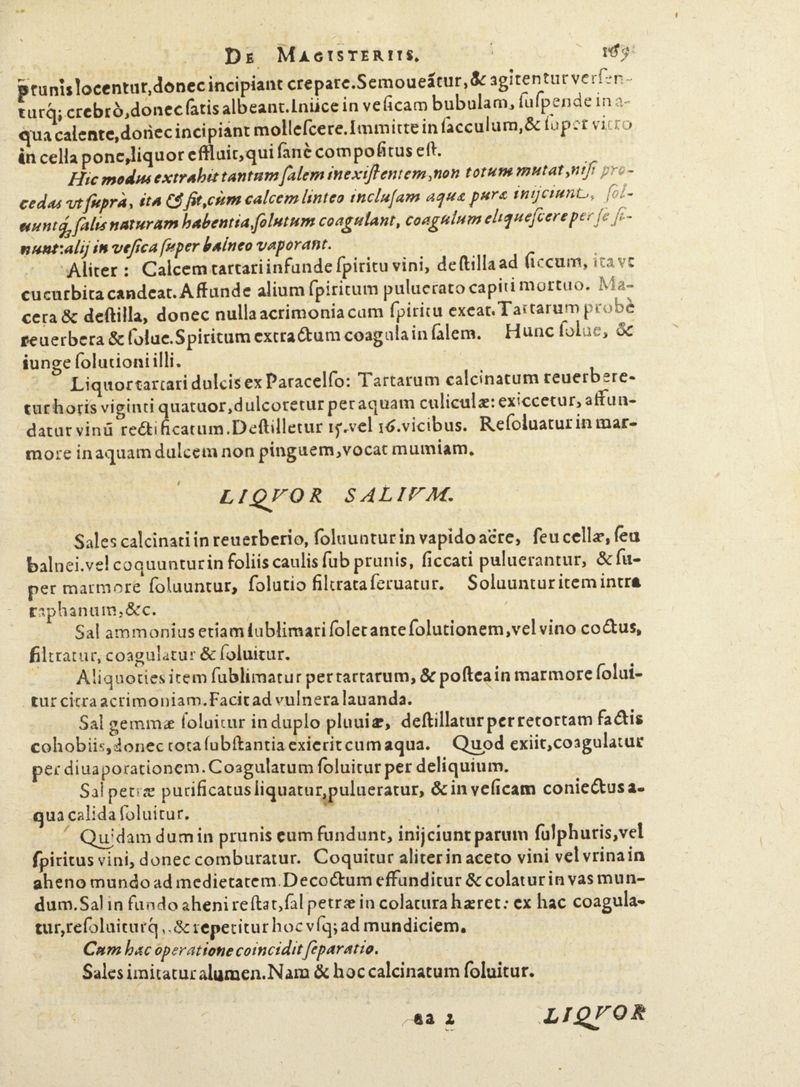 DE MAGISTERIIS. 169
prunis locentur, donec incipiant crepare. Semoueātur, & agitentur versen-
turq; crebrò, donec satis albeant. Iniice in vesicam bubulam, suspende in a-
qua calente, donec incipiant mollescere. Immitte in sacculum, & super vitro
in cella pone, liquor effluit, qui sanè compositus est.
Hic modus extrahit tantum salem inexistentem, non totum mutat, nisi pro-
cedas vt suprà, ita & fit, cùm calcem linteo inclusam aquæ puræ inijciunt, sol-
uuntq́; salis naturam habentia, solutum coagulant, coagulum eliquescere per se si-
nunt: alij in vesica super balneo vaporant.
Aliter: Calcem tartari infunde spiritu vini, destilla ad siccum, ita vt
cucurbita candeat. Affunde alium spiritum puluerato capiti mortuo. Ma-
cera & destilla, donec nulla acrimonia cum spiritu exeat. Tartarum probè
reuerbera & solue. Spiritum extractum coagula in salem. Hunc solue, &
iunge solutioni illi.
Liquor tartari dulcis ex Paracelso: Tartarum calcinatum reuerbere-
tur horis viginti quatuor, dulcoretur per aquam culiculæ: exiccetur, affun-
datur vinū rectificatum. Destilletur 15. vel 16. vicibus. Resoluatur in mar-
more in aquam dulcem non pinguem, vocat mumiam.
LIQVOR SALIVM.
Sales calcinati in reuerberio, soluuntur in vapido aëre, seu cellæ, seu
balnei. vel coquuntur in foliis caulis sub prunis, siccati puluerantur, & su-
per marmore soluuntur, solutio filtrata seruatur. Soluuntur item intra
raphanum, &c.
Sal ammonius etiam sublimari solet ante solutionem, vel vino coctus,
filtratur, coagulatur & soluitur.
Aliquoties item sublimatur per tartarum, & postea in marmore solui-
tur citra acrimoniam. Facit ad vulnera lauanda.
Sal gemmæ soluitur in duplo pluuiæ, destillatur per retortam factis
cohobiis, donec tota substantia exierit cum aqua. Quod exiit, coagulatur
per diuaporationem. Coagulatum soluitur per deliquium.
Sal petræ purificatus liquatur, pulueratur, & in vesicam coniectus a-
qua calida soluitur.
Quidam dum in prunis eum fundunt, inijciunt parum sulphuris, vel
spiritus vini, donec comburatur. Coquitur aliter in aceto vini vel vrina in
aheno mundo ad medietatem. Decoctum effunditur & colatur in vas mun-
dum. Sal in fundo aheni restat, sal petræ in colatura hæret: ex hac coagula-
tur, resoluiturq́, & repetitur hoc vsq; ad mundiciem.
Cum hac operatione coincidit separatio.
Sales imitatur alumen. Nam & hoc calcinatum soluitur.
aa 2 LIQVOR